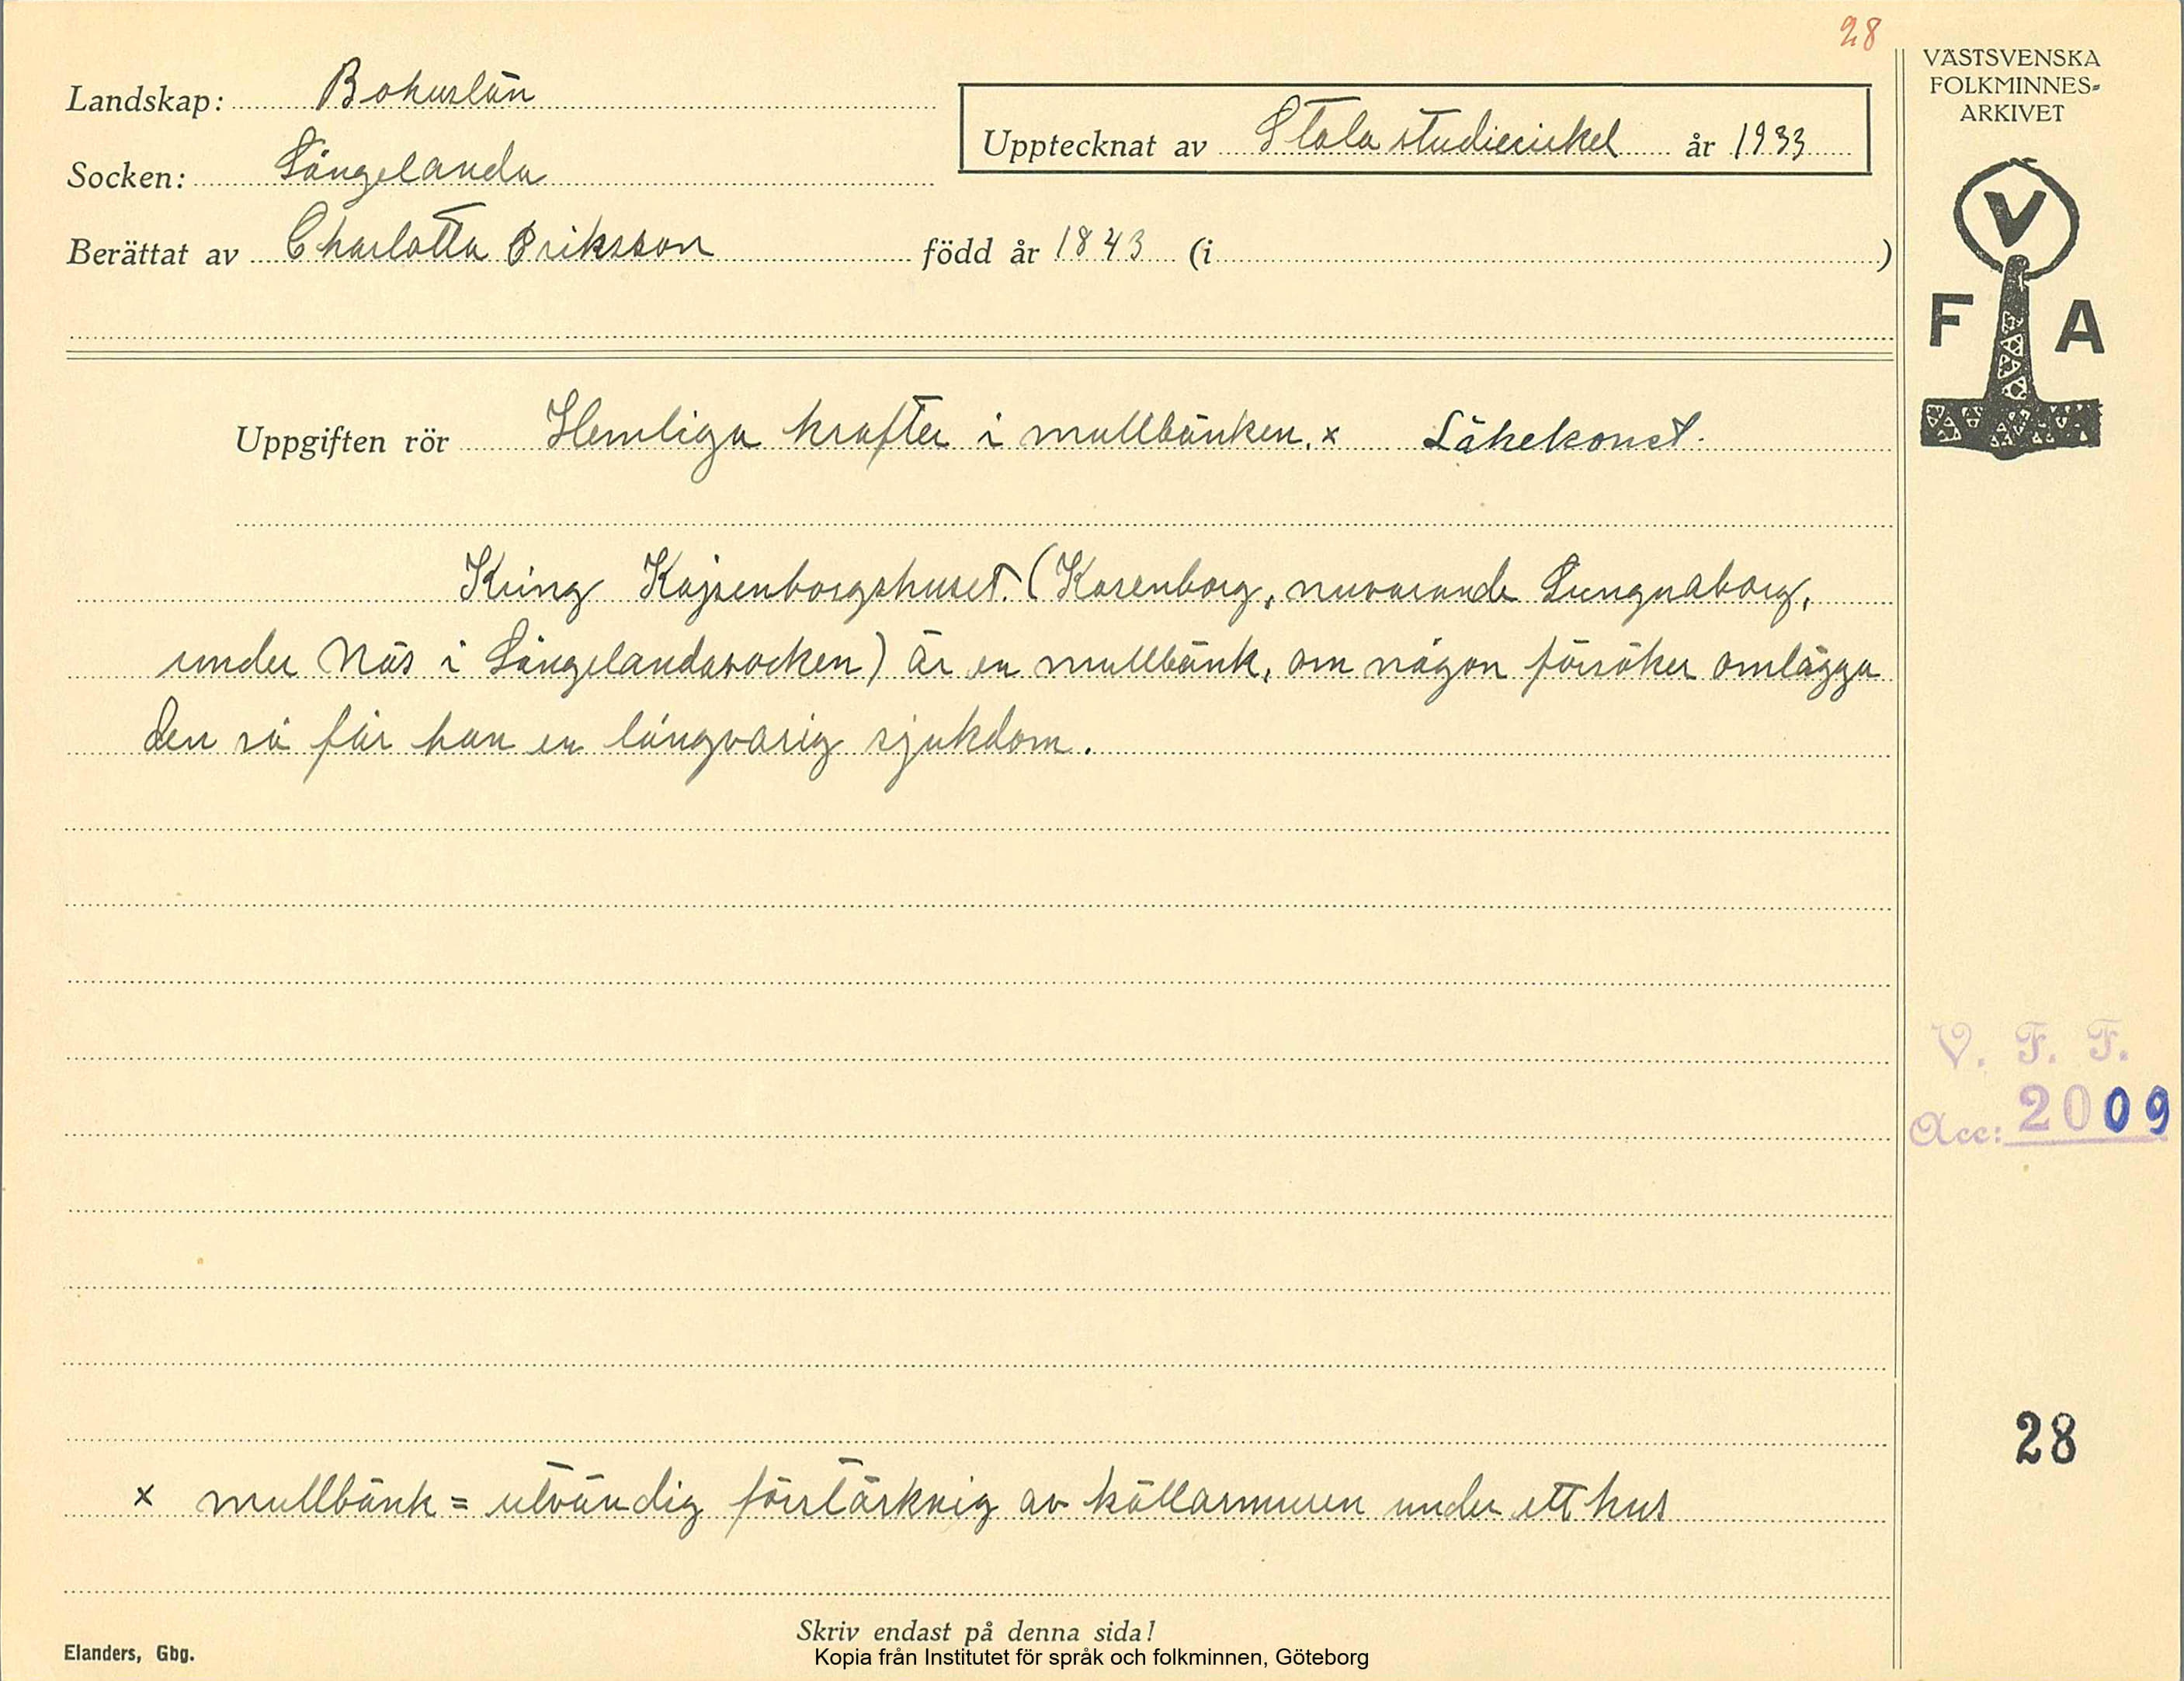 28
VÄSTSVENSKA
FOLKMINNES-
ARKIVET
Landskap: Bohuslän
Upptecknat av Stala studiecirkel år 1933
Socken: Långelanda
Berättat av Charlotta Eriksson född år 1843 (i )
V
F A
Uppgiften rör Hemliga krafter i mullbänken. x Läkekonst.
Kring Kajsenborgshuset. (Kasenborg, nuvarande Lungnaborg,
under Näs i Långelandasocken) är en mullbänk, om någon försöker omlägga
den så får han en långvarig sjukdom.
V. F. F.
Acc: 2009
28
x mullbänk = utvändig förstärknig av källarmuren under ett hus
Skriv endast på denna sida!
Elanders, Gbg.
Kopia från Institutet för språk och folkminnen, Göteborg